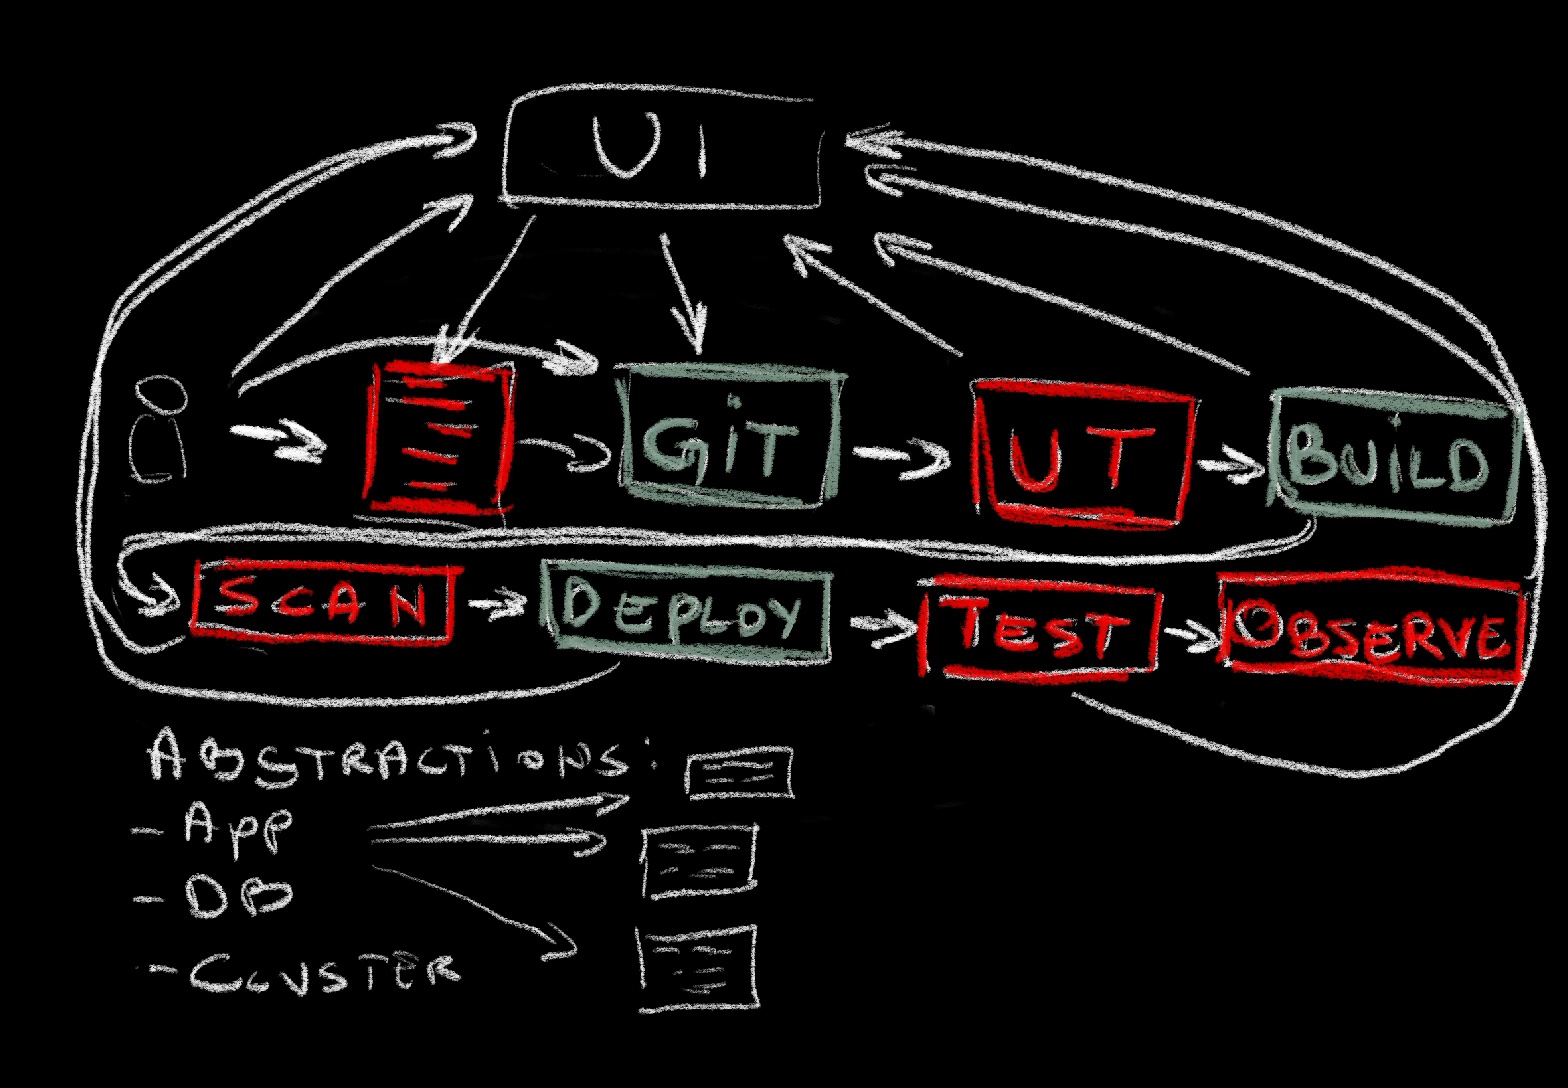 UI
GiT
UT
BUiLD
SCAN
DEPLOY
TEST
OBSERVE
ABSTRACTiONS:
- APP
- DB
- CLUSTER